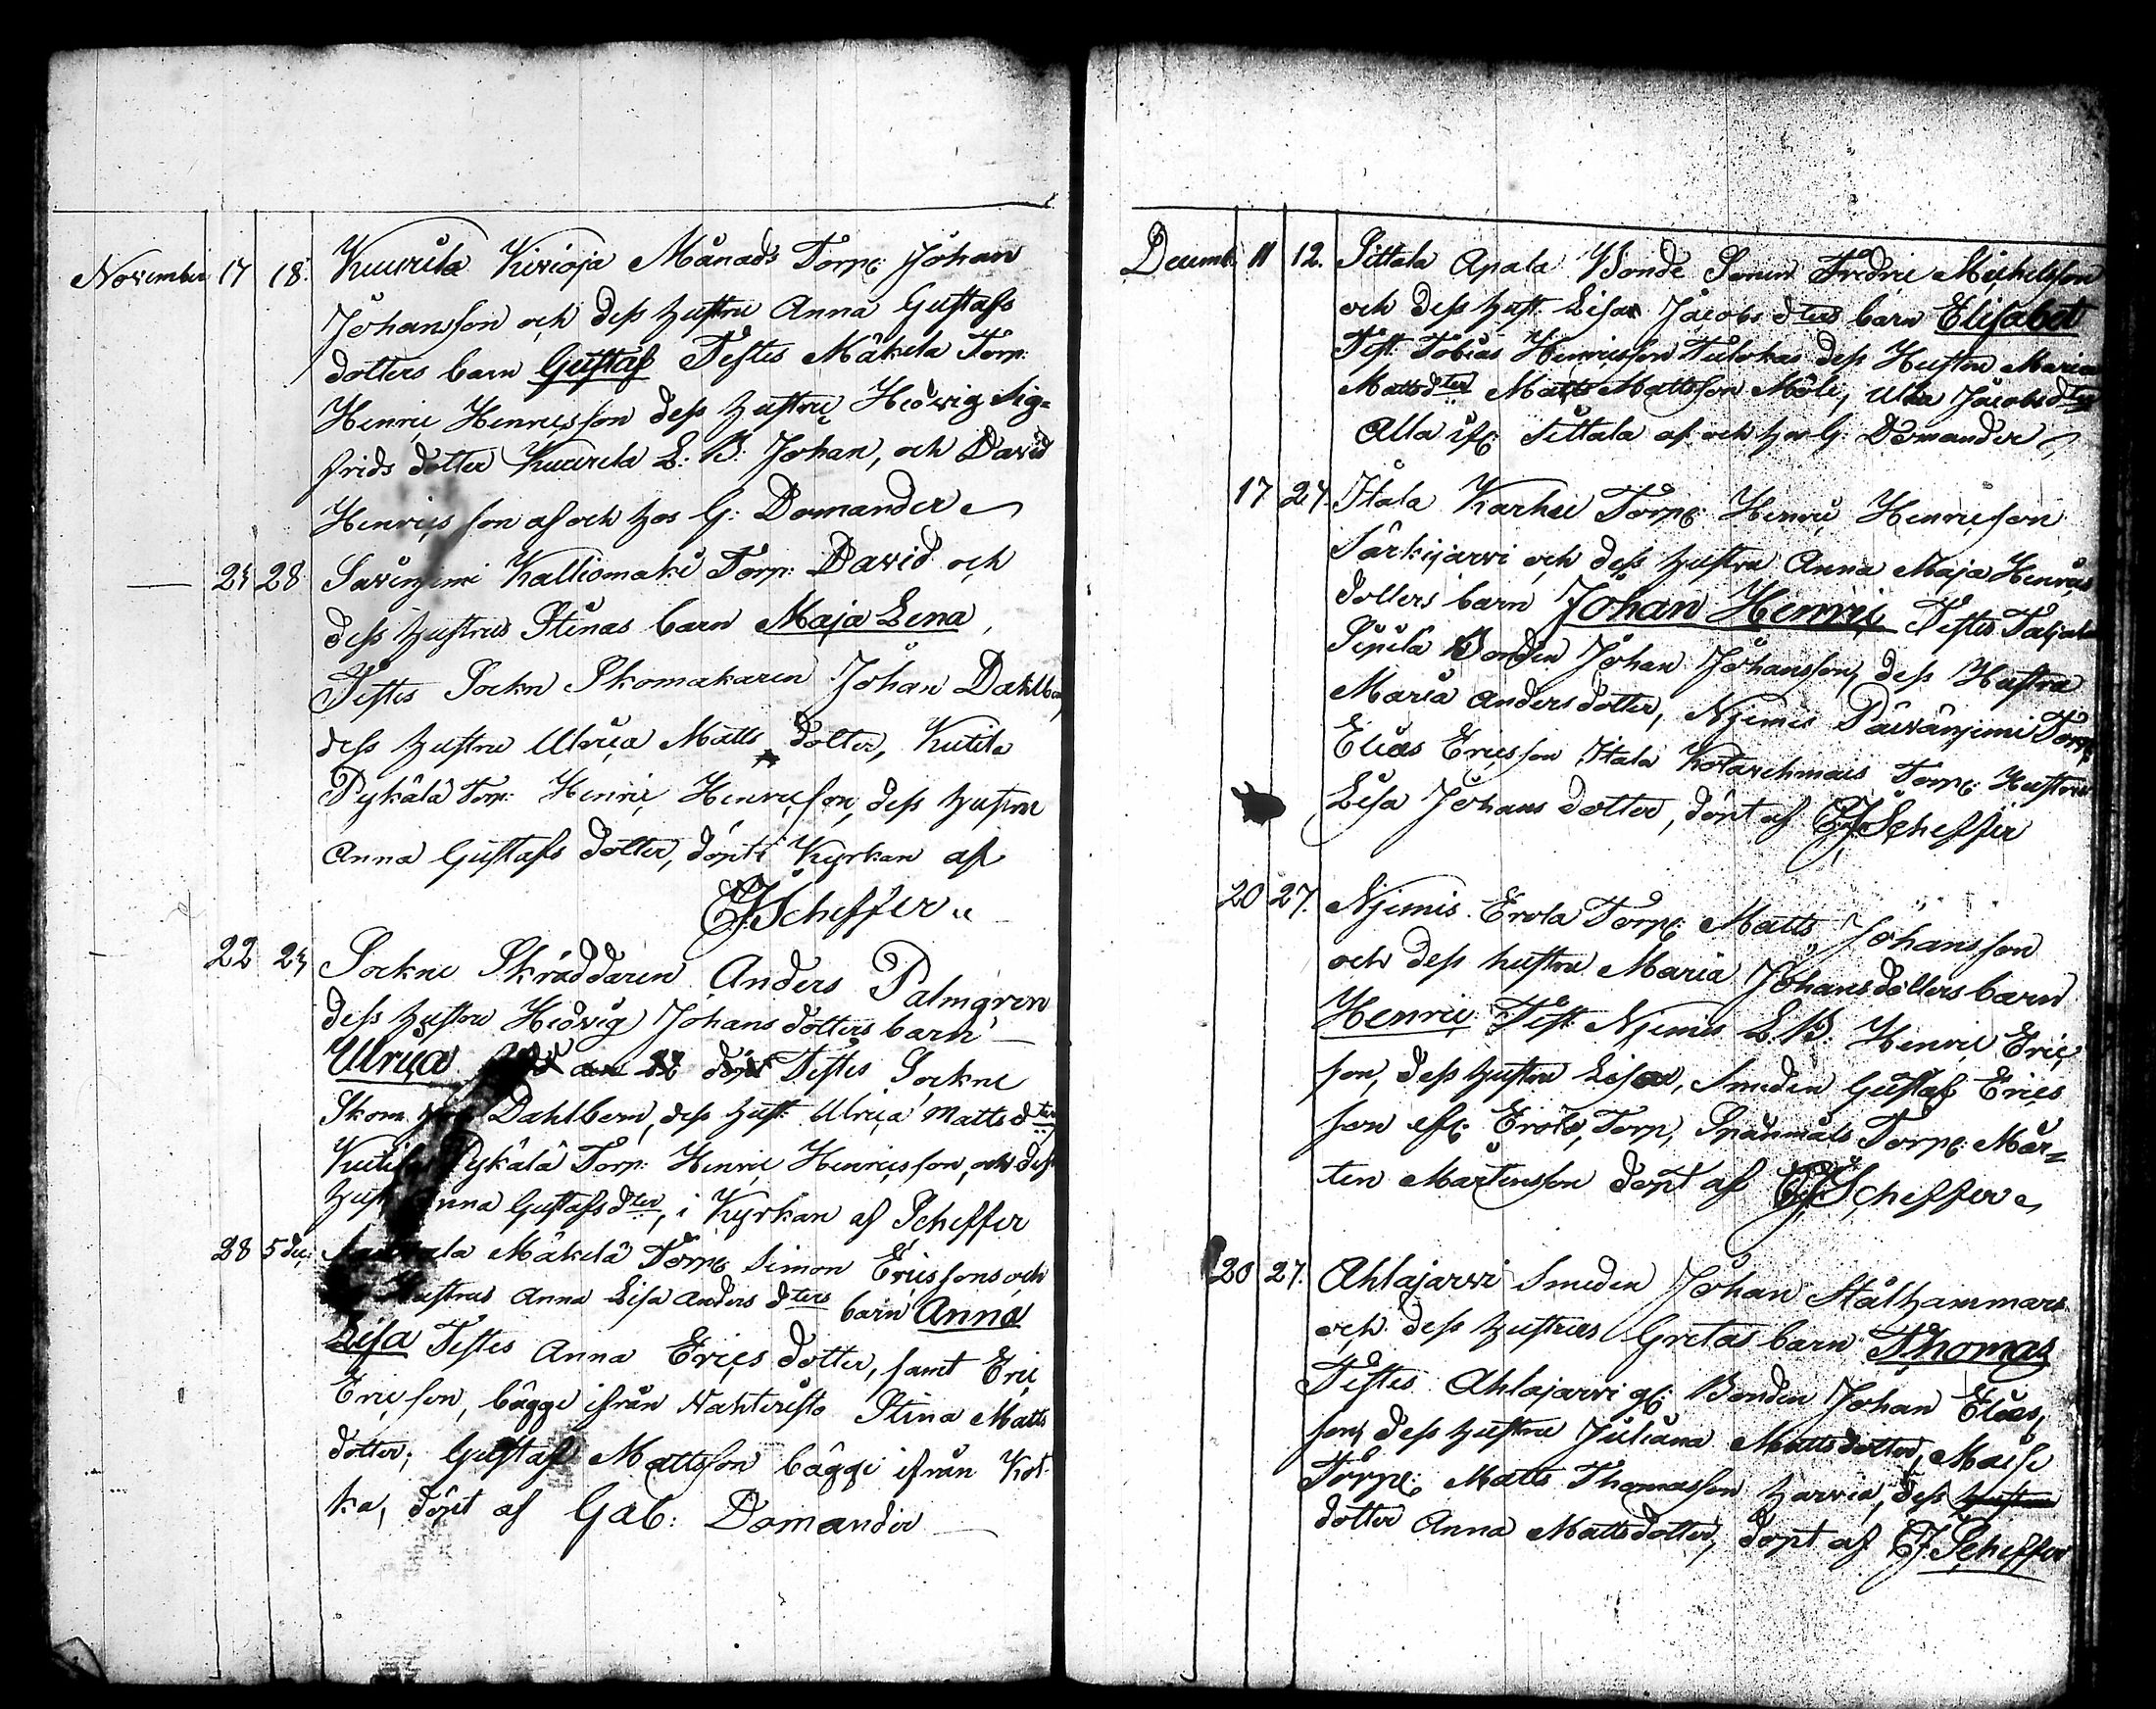 November 17 18. Kuurila Kivioja Månads Torp: Johan
Johansson och dess hustru Anna Gustafs
dotters barn Gustaf Testes Mäkelä Torp:
Henric Henricsson dess hustru Hedvig Sig=
frids dotter Kuurila L: B: Johan, och David
Henricsson af och hos G: Domander
— 24 28 Savinjemi Kalliomaki Torp: David och
dess hustrus Stinas barn Maja Lena,
Testes Sockn Skomakaren Johan Dahlber
dess hustru Ulrica Matts dotter, Kutila
Pykälä Torp: Henric Henricsson, dess hustru
Anna Gustafs dotter, döpt i Kyrkan af
EJScheffer
22 24 Sockne Skräddaren Anders Palmgren
dess hustru Hedvig Johans dotters barn
Ulrica döpt Testes Sockne
Skom: Dahlberg, dess hust: Ulrica Matts dter,
Kutila Pykälä Torp: Henric Henricsson, och dess
hust Anna Gustafs dter, i Kyrkan af Scheffer
28 5 dec: Mäkelä Torp: Simon Ericssons och
Hustrus Anna Lisa Anders dters barn Anna
Lisa Testes Anna Erics dotter, samt Eric
Ericsson, bägge ifrån Stina Matts
dotter, Gustaf Mattsson bägge ifrån Kot
ka, döpt af Gab: Domander
Decemb: 11 12. Sittala Apala Bonde Sonen Fredric Michelsson
och dess hust: Lisa Jacobs dters barn Elisabet
Test: Tobias Henricsson Tulokas dess Hustru Maria
Mattsdter Matts Mattsson Ulla Jacobs dter
Alla if: Sittala af och hos G: Domander
17 24. Itala Karhu Torp: Henric Henricsson
Särkijarvi och dess hustru Anna Maja Henrics
dotters barn Johan Henric Testes Taljala
Sipila Bonden Johan Johansson, dess Hustru
Maria Anders dotter, Njemis Päivänjemi Torp:
Elias Ericsson Itala Torp: Hustru
Lisa Johans dotter, döpt af EJScheffer
20 27. Njemis Erola Torp: Matts Johansson
och dess hustru Maria Johans dotters barn
Henric Test: Njemis L.B: Henric Eric
son, dess hustru Lisa, Smeden Gustaf Erics
son Erola, Torp, Torp: Mår=
ten Mårtensson döpt af EJScheffer
20 27. Ahlajarvi Smeden Johan Stålhammars
och dess hustrus Gretas barn Thomas
Testes Ahlajarvi Bonden Johan Elias
son, dess hustru Juliana Mattsdotter,
Torp: Matts Thomasson Harvia, dess hustru
dotter Anna Mattsdotter, döpt af EJ Scheffer